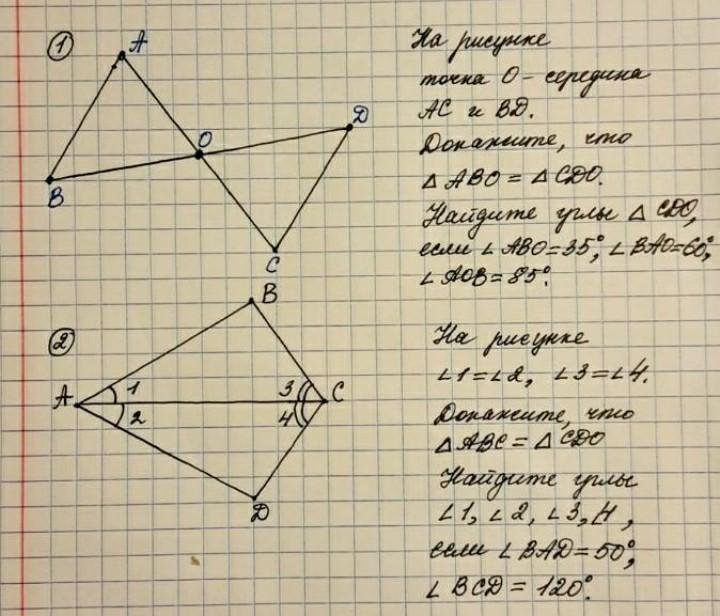 1
A
O
D
B
C
На рисунке
точка О – середина
АС и BD.
Докажите, что
△ ABO = △ CDO.
Найдите углы △ CDO,
если ∠ ABO = 35°, ∠ BAO = 60°,
∠ AOB = 85°.
2
B
A
1
2
3
4
C
D
На рисунке
∠1 = ∠2, ∠3 = ∠4.
Докажите, что
△ ABC = △ CDO
Найдите углы
∠1, ∠2, ∠3, 4,
если ∠ BAD = 50°,
∠ BCD = 120°.